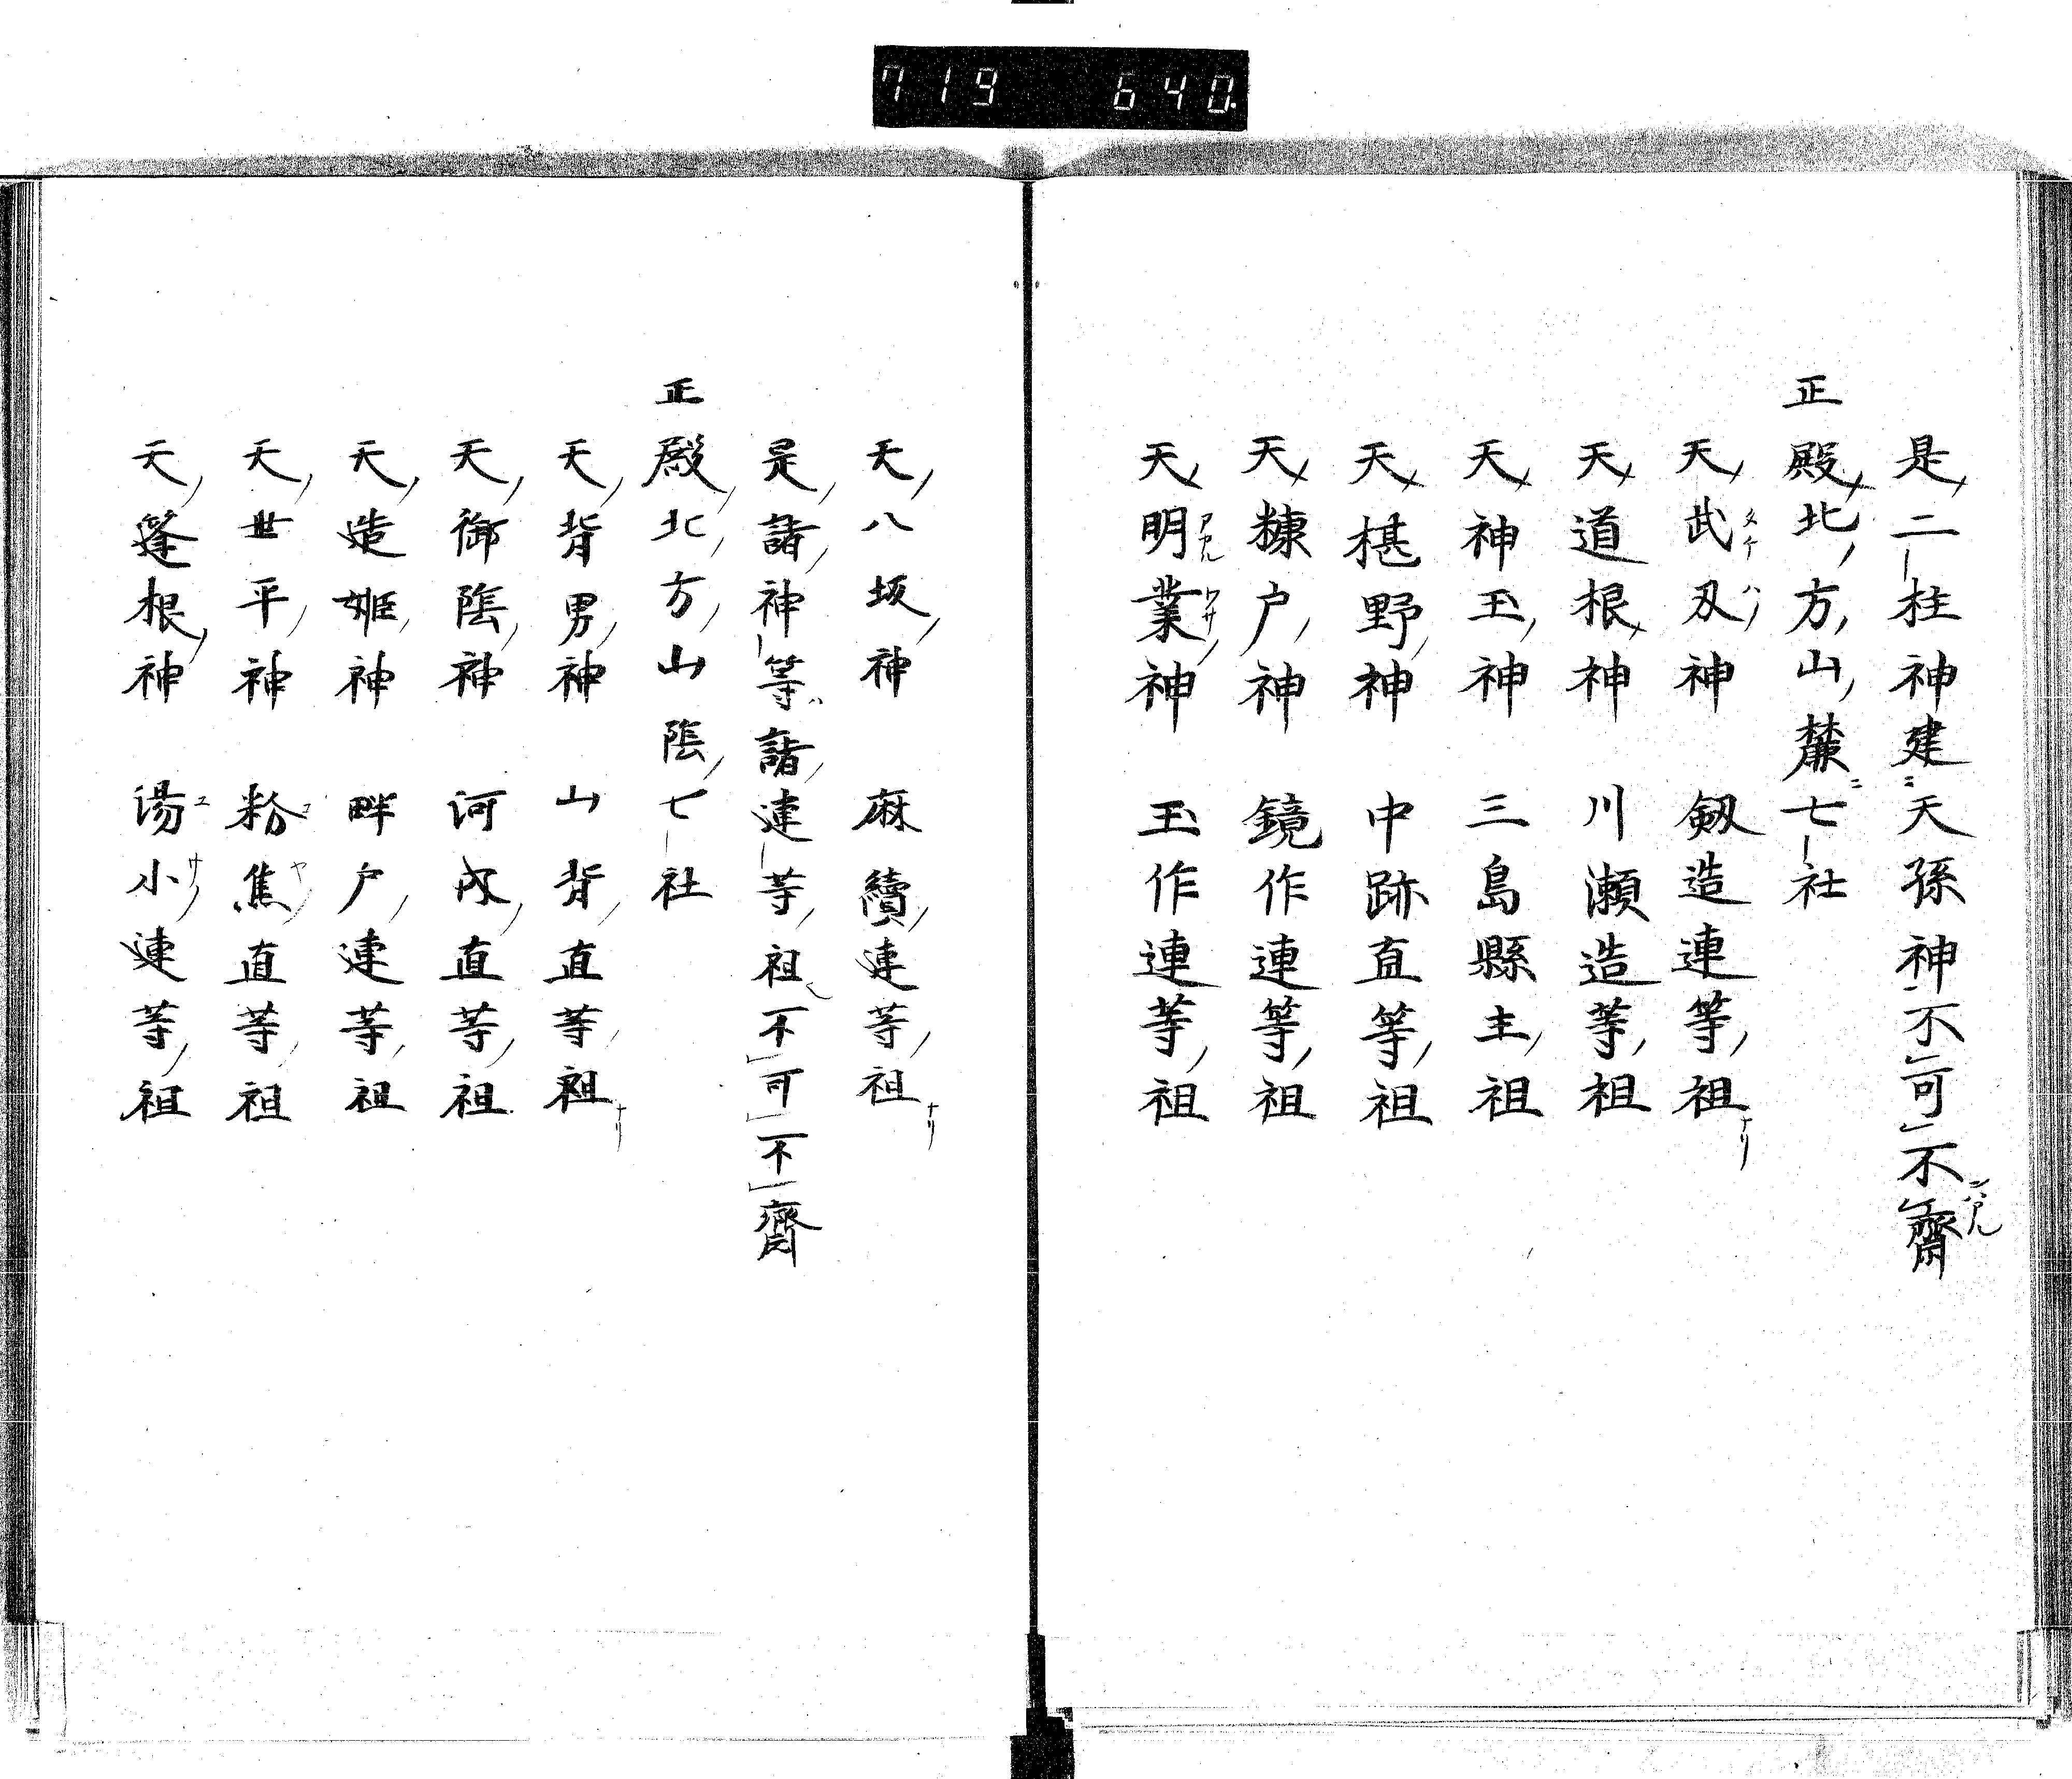 719 640
是二柱神建ニ天孫神不可不齋
正殿北方山麓ニ七社
天武刄神 劔造連等祖ナリ
天道根神 川瀬造等祖
天神玉神 三島縣主祖
天椹野神 中跡直等祖
天糠戸神 鏡作連等祖
天明業神 玉作連等祖
天八坂神 麻續連等祖ナリ
是諸神等ハ諸連等祖不可不齋
正殿北方山陰七社
天背男神 山背直等祖ナリ
天御陰神 河内直等祖
天造姫神 畔戸連等祖
天世平神 粉焦直等祖
天篷根神 湯小連等祖